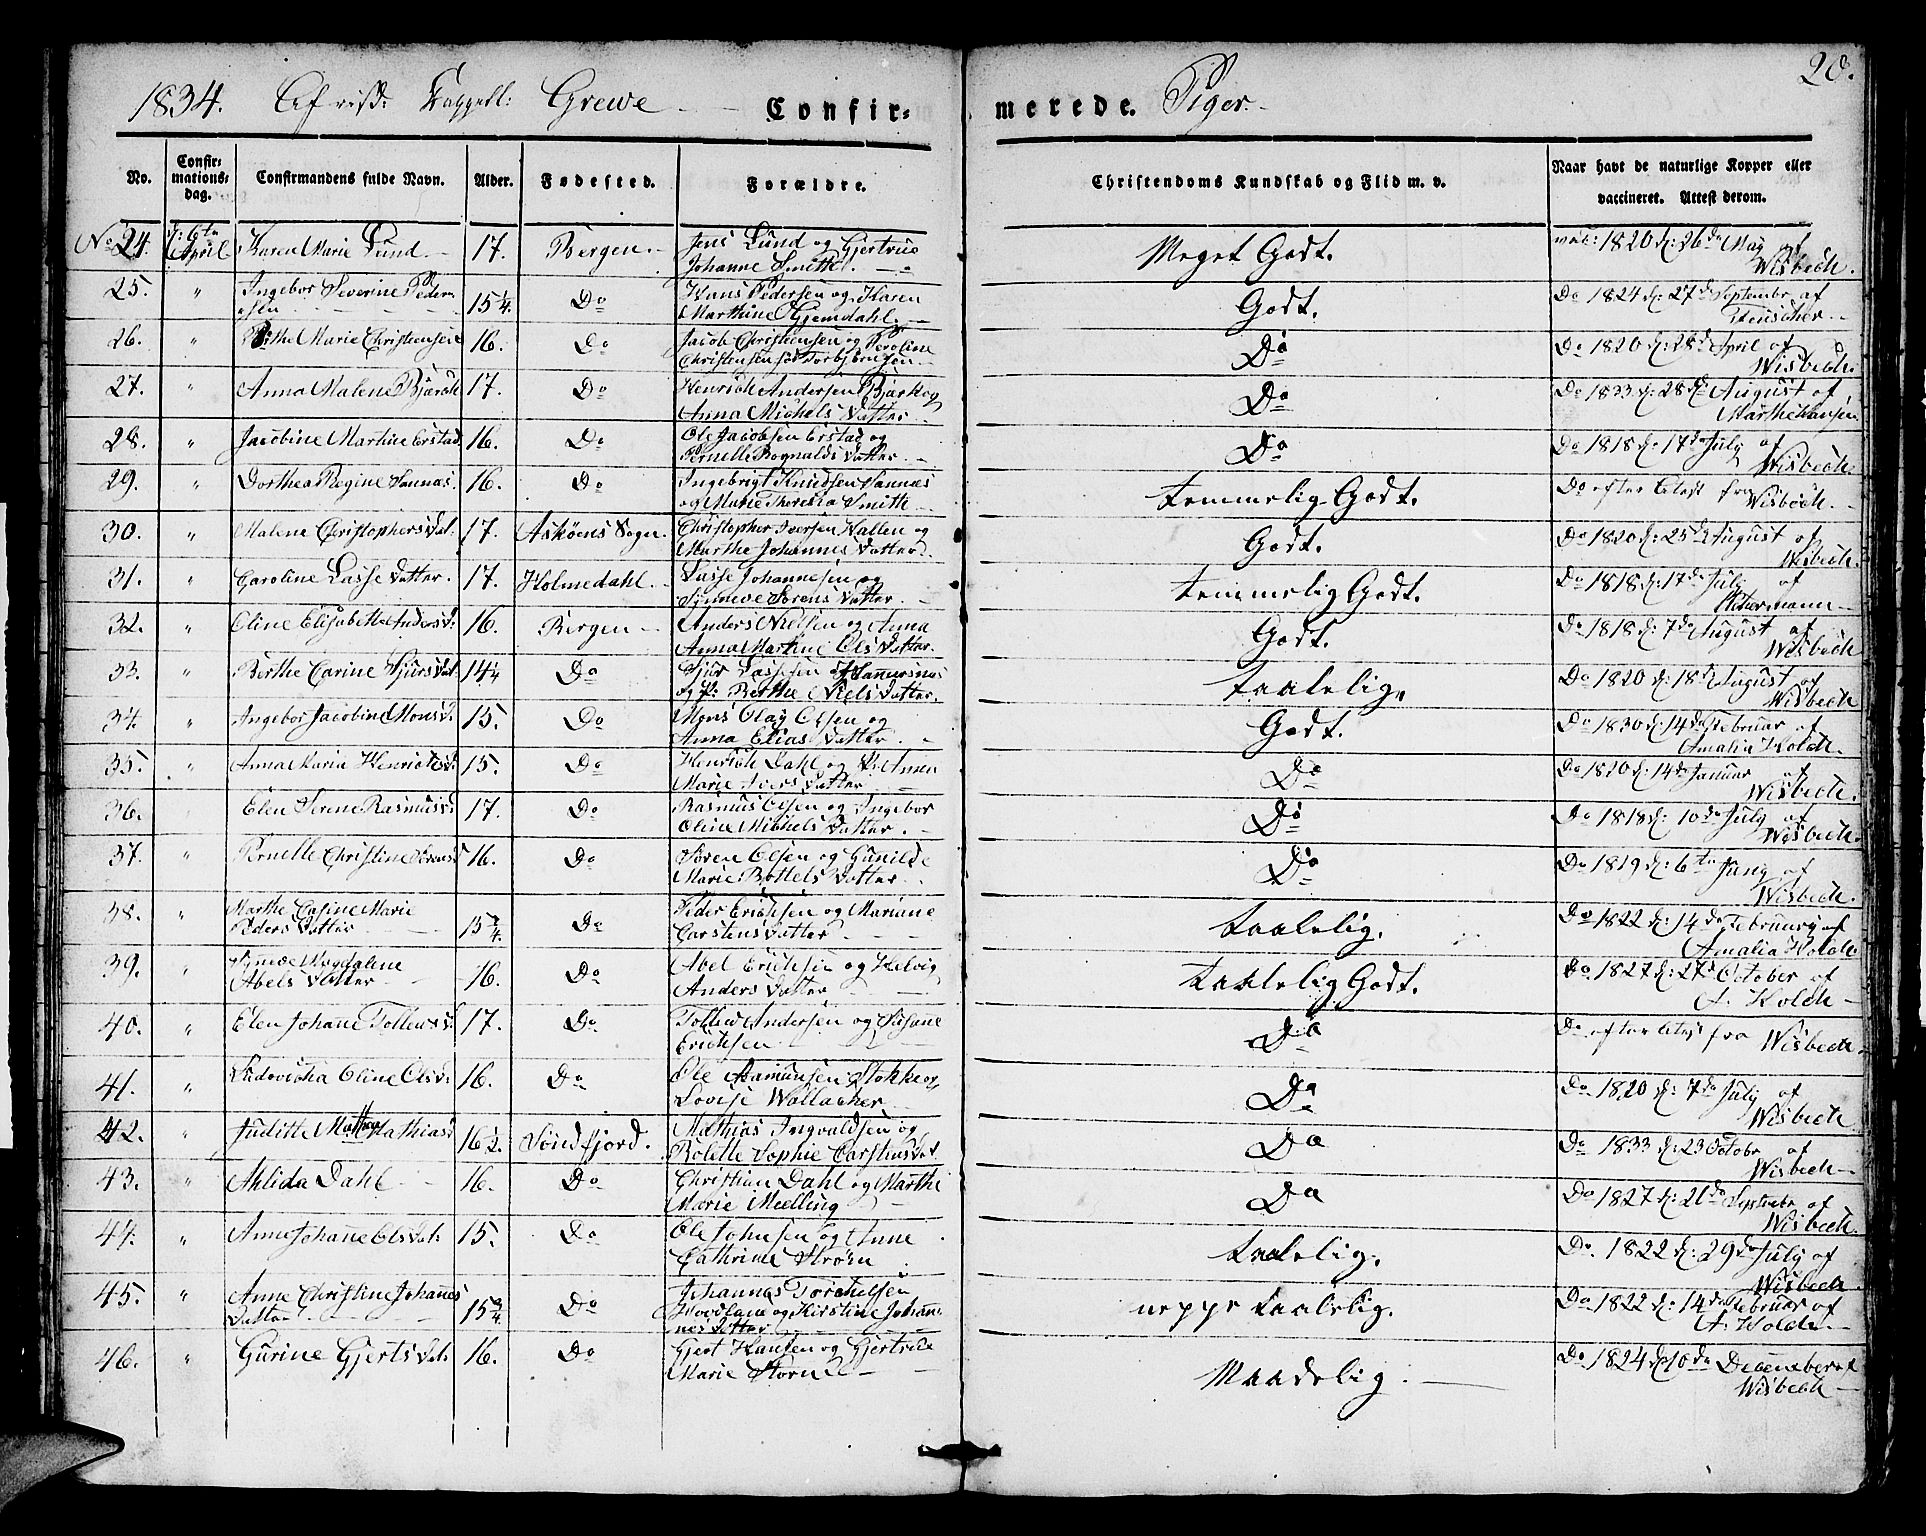 1834. Capell: Grewe - Confirmerede. Piger. 20.
No. Confirmationsdag. Confirmandens fulde Navn. Alder. Fødested. Forældre. Christendoms Kundskab og Flid m. v. Naar havt de naturlige Kopper eller vaccineret. Attest derom.
No 24. d: 6te April Karen Marie Lund. 17. Bergen. Jens Lund og Gjertrue Johanne Smittel. Meget Godt. vac: 1820 d: 26de May af Wisbech.
25. " Ingebor Severine Pedersen 15 1/4. Do Hans Pedersen og Karen Marthine Gjemdahl. Godt. Do 1824 d: 27de Septembr af
26. " Marie Christensen 16. Do Jacob Christensen og Peroline Christensen Torbjørnsen Do Do 1820 d: 28de April af Wisbech.
27. " Anna Malene Bjørck 17. Do Henrich Andersen Bjørk og Anna Michels Datter. Do Do 1833 d: 28de August af Marthe Hansen
28. " Jacobine Martine Erstad 16. Do Ole Jacobsen Erstad og Pernelle Rognalds Datter. Do Do 1818 d: 17de July af Wisbech.
29. " Dorthea Regine Sannæs. 16. Do Ingebrigt Knudsen Sannæs og Marie Theresia Smith temmelig Godt. Do efter Attest fra Wisbech.
30. " Malene Christophersdat: 17. Askøens Sogn. Christopher Iversen Hallen og Marthe Johannes Datter. Godt. Do 1820 d: 25de August af Wisbech.
31. " Caroline Lasse Datter. 17. Holmedahl. Lasse Johannesen og Synneve Sørens Datter. temmelig Godt. Do 1818 d: 17de July af
32. " Oline Elisabeth Andersd: 16. Bergen Anders Nielsen og Anna Anna Martine Ols Datter. Godt. Do 1818 d: 7de August af Wisbech
33. " Berthe Carine Sjursdat: 14 1/4 Do Sjur Lassesen og P: Berthe Niels Datter. taalelig. Do 1820 d: 18de August af Wisbech
34. " Ingebor Jacobine Monsd: 15. Do Mons Olay Olsen og Anna Elias Datter. Godt. Do 1830 d: 14de Februar af Amalia Holch.
35. " Anna Maria Henrichsd: 15. Do Henrich Dahl og P: Anna Marie Ivers Datter Do Do 1820 d: 14de Januar af Wisbech.
36. " Elen Serene Rasmusd: 17. Do Rasmus Olsen og Ingebor Oline Michels Datter. Do Do 1818 d: 10de July af Wisbech.
37. " Pernelle Christine Sørensd 16. Do Søren Olsen og Gunilde Marie Bottels Datter Do Do 1819 d: 6te Juny af Wisbech.
38. " Marthe Casine Marie Peders Datter 15 3/4. Do Peder Erichsen og Mariane Carstens Datter taalelig. Do 1822 d: 14de February af Amalia Holch
39. " Magdalene Abels Datter 16. Do Abel Erichsen og Helvig Anders Datter taalelig Godt. Do 1827 d: 27de October af A. Holch
40. " Elen Johanne Tollewsd: 17. Do Tollew Andersen og Susanne Erichsen Do Do efter Attest fra Wisbech
41. " Ludovicha Oline Olsd: 16. Do Ole Aamunsen Stokke og Lovise Wallacher Do Do 1820 d: 7de July af Wisbech
42. " Juditte Mathiasd: 16 1/2. Søndfjord. Mathias Ingvaldsen og Bolette Sophie Carstensdat Do Do 1833 d: 23 Octobr af Wisbech
43. " Ahlida Dahl 16. Do Christian Dahl og Marthe Marie Melling Do Do 1827 d: 20de Septembr af Wisbech
44. " Anne Johanne Olsdat: 15. Do Ole Johnsen og Anne Cathrine Strøm taalelig. Do 1822 d: 29de July af Wisbech
45. " Anne Christine Johannes Datter 15 3/4 Do Johannes Torchelsen og Kirstine Johannes Datter neppe taalelig. Do 1822 d: 14de Februar af A. Holch.
46. " Gurine Gjertsdat: 16. Do Gjert Hansen og Gjertrude Marie Maadelig. Do 1824 d: 10de December af Wisbech